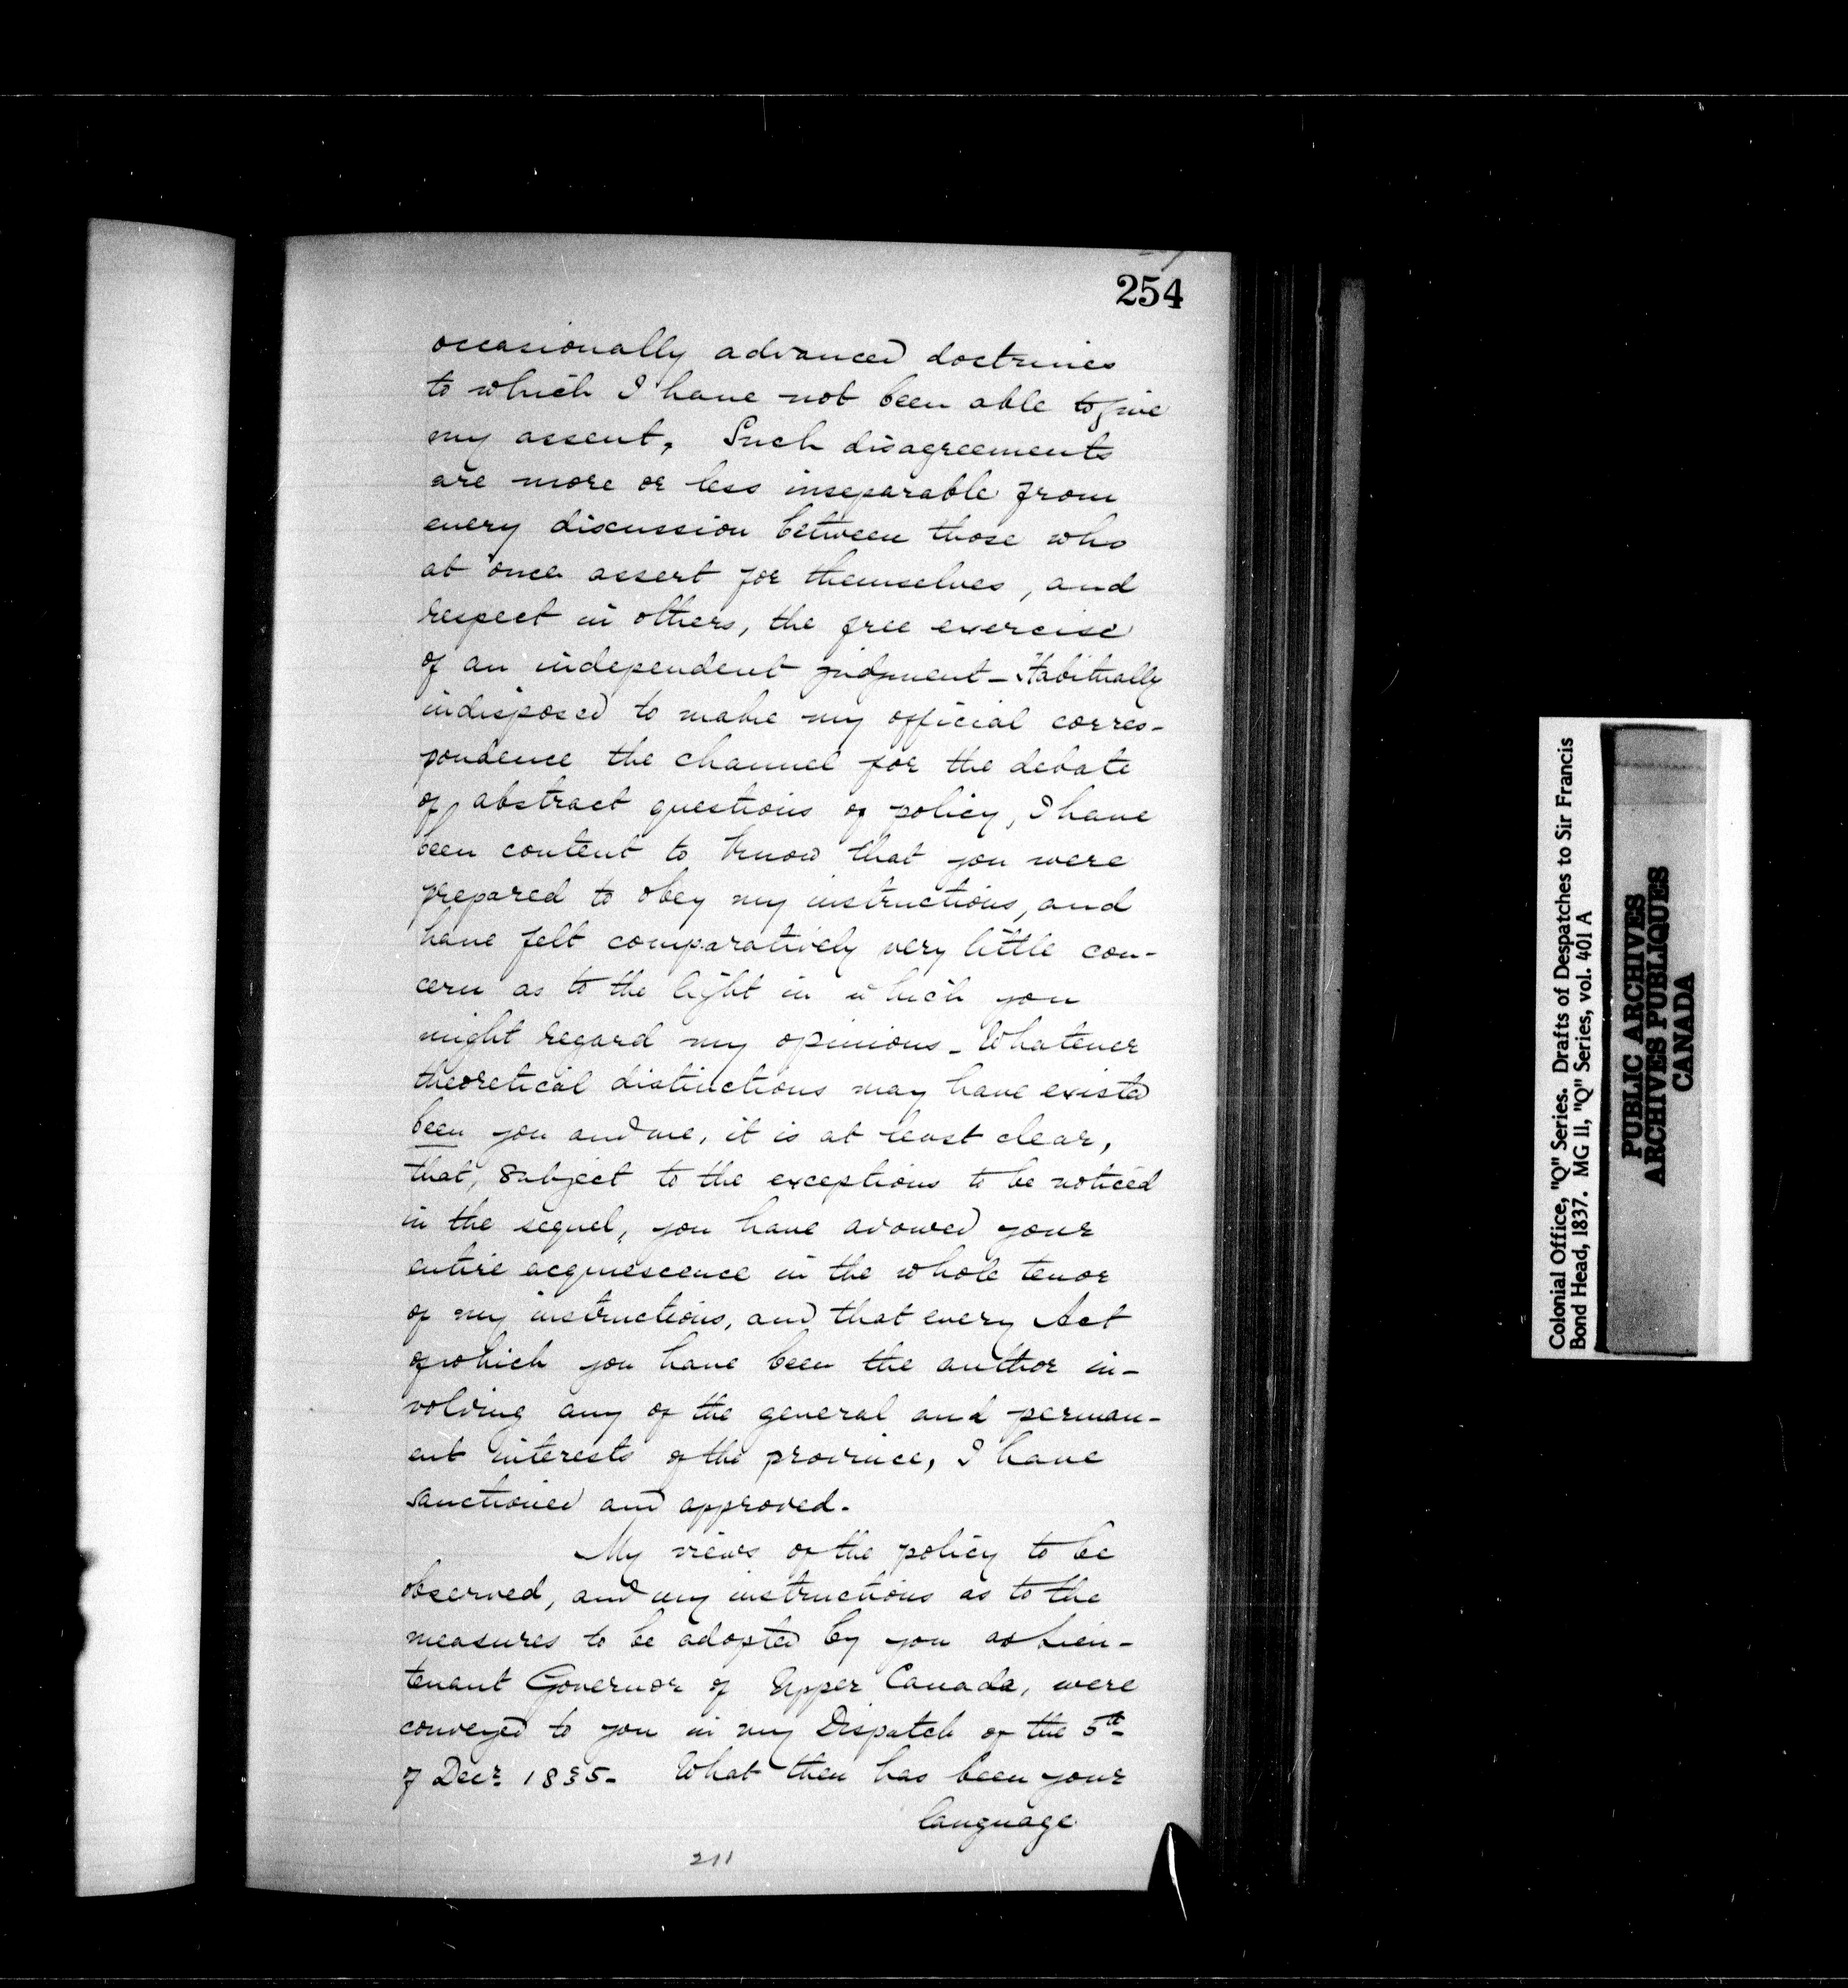 254
occasionally advanced doctrines
to which I have not been able to give
my assent. Such disagreements
are more or less inseparable from
every discussion between those who
at once assert for themselves, and
respect in others, the free exercise
of an independent judgment - Habitually
indisposed to make my official corres-
pondence the channel for the debate
of abstract questions of policy, I have
been content to know that you were
prepared to obey my instructions, and
have felt comparatively very little con-
cern as to the light in which you
might regard my opinions - Whatever
theoretical distinctions may have existed
been you and me, it is at least clear,
that, subject to the exceptions to be noticed
in the sequel, you have avowed your
entire acquiescence in the whole tenor
of my instructions, and that every Act
of which you have been the author in-
volving any of the general and perman-
ent interests of the province, I have
sanctioned and approved.
My views of the policy to be
observed, and my instructions as to the
measures to be adopted by you as Lieu-
tenant Governor of Upper Canada, were
conveyed to you in my Dispatch of the 5th
of Decr 1835 - What then has been your
language
211
Colonial Office, "Q" Series. Drafts of Despatches to Sir Francis
Bond Head, 1837. MG 11, "Q" Series, vol. 401 A
PUBLIC ARCHIVES
ARCHIVES PUBLIQUES
CANADA